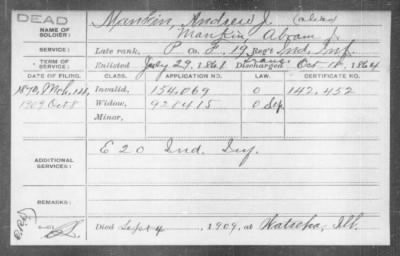 DEAD
NAME OF SOLDIER: Mankin, Andrew J. (alias)
Mankin Abram J.
SERVICE: Late rank, P Co. F, 19 Reg't Ind. Inf.
TERM OF SERVICE: Enlisted July 29, 1861 Trans. Discharged Oct 18, 1864
DATE OF FILING. CLASS. APPLICATION NO. LAW. CERTIFICATE NO.
Invalid, 154,069 0 142,452
1909 Oct 8 Widow, 928415 0 Sep
Minor,
ADDITIONAL SERVICES: E 20 Ind. Inf.
REMARKS:
Died Sept 4, 1909, at Ill.